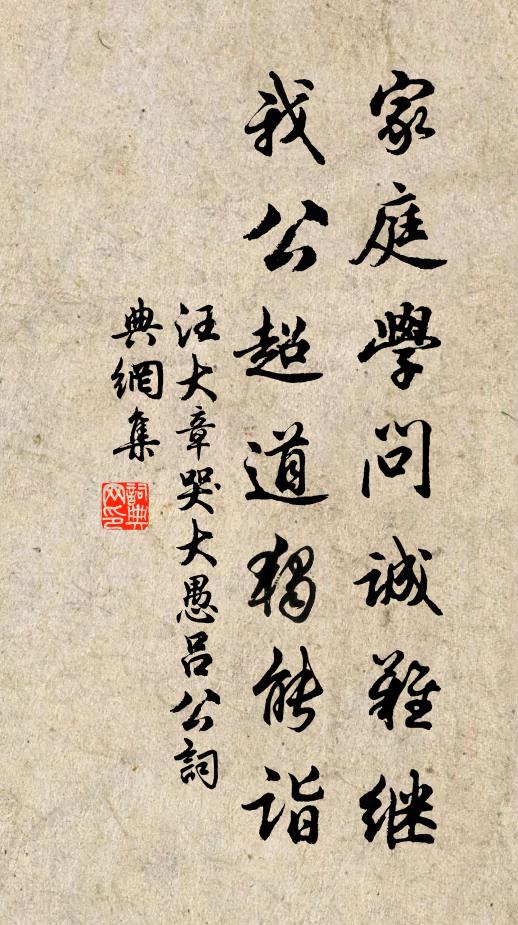 家庭學问诚難继
我公超道獨能诣
汪大章哭大愚吕公詞
典網集
詞典
网印